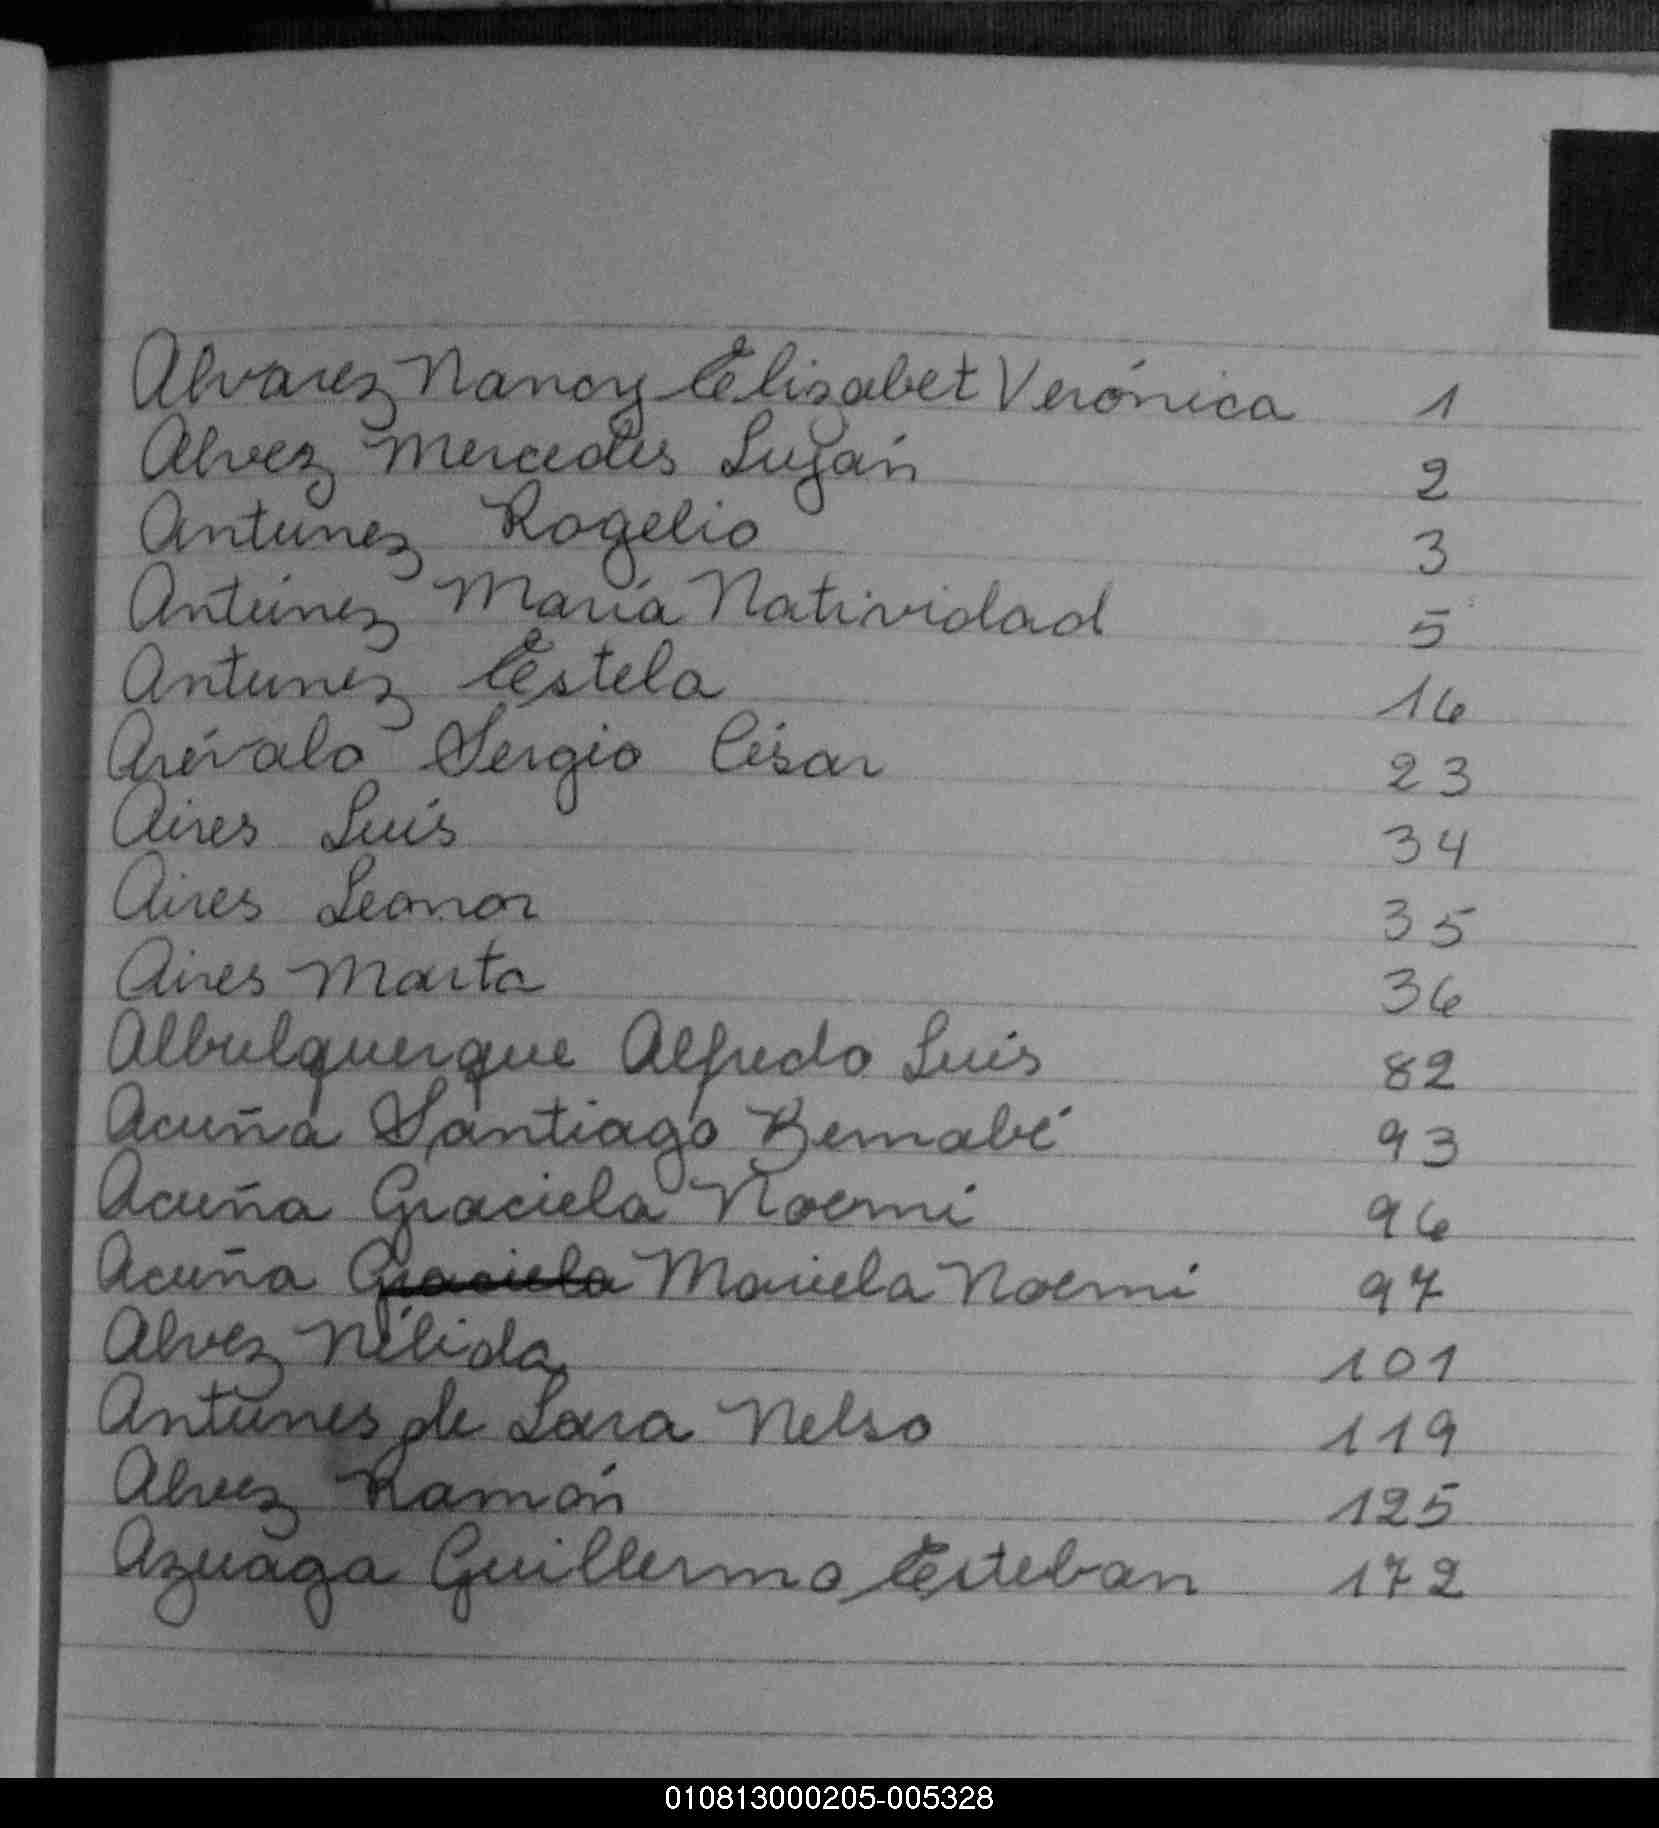 Alvarez Nancy Elisabet Verónica 1
Alvez Mercedes Luján 2
Antunez Rogelio 3
Antúnez María Natividad 5
Antunez Estela 16
Arévalo Sergio César 23
Aires Luis 34
Aires Leonor 35
Aires Marta 36
Albulquerque Alfredo Luis 82
Acuña Santiago Bernabé 93
Acuña Graciela Noemi 96
Acuña Graciela Mariela Noemi 97
Alvez Nélida 101
Antunes de Lara Nelso 119
Alvez Ramón 125
Azuaga Guillermo Esteban 172
010813000205-005328